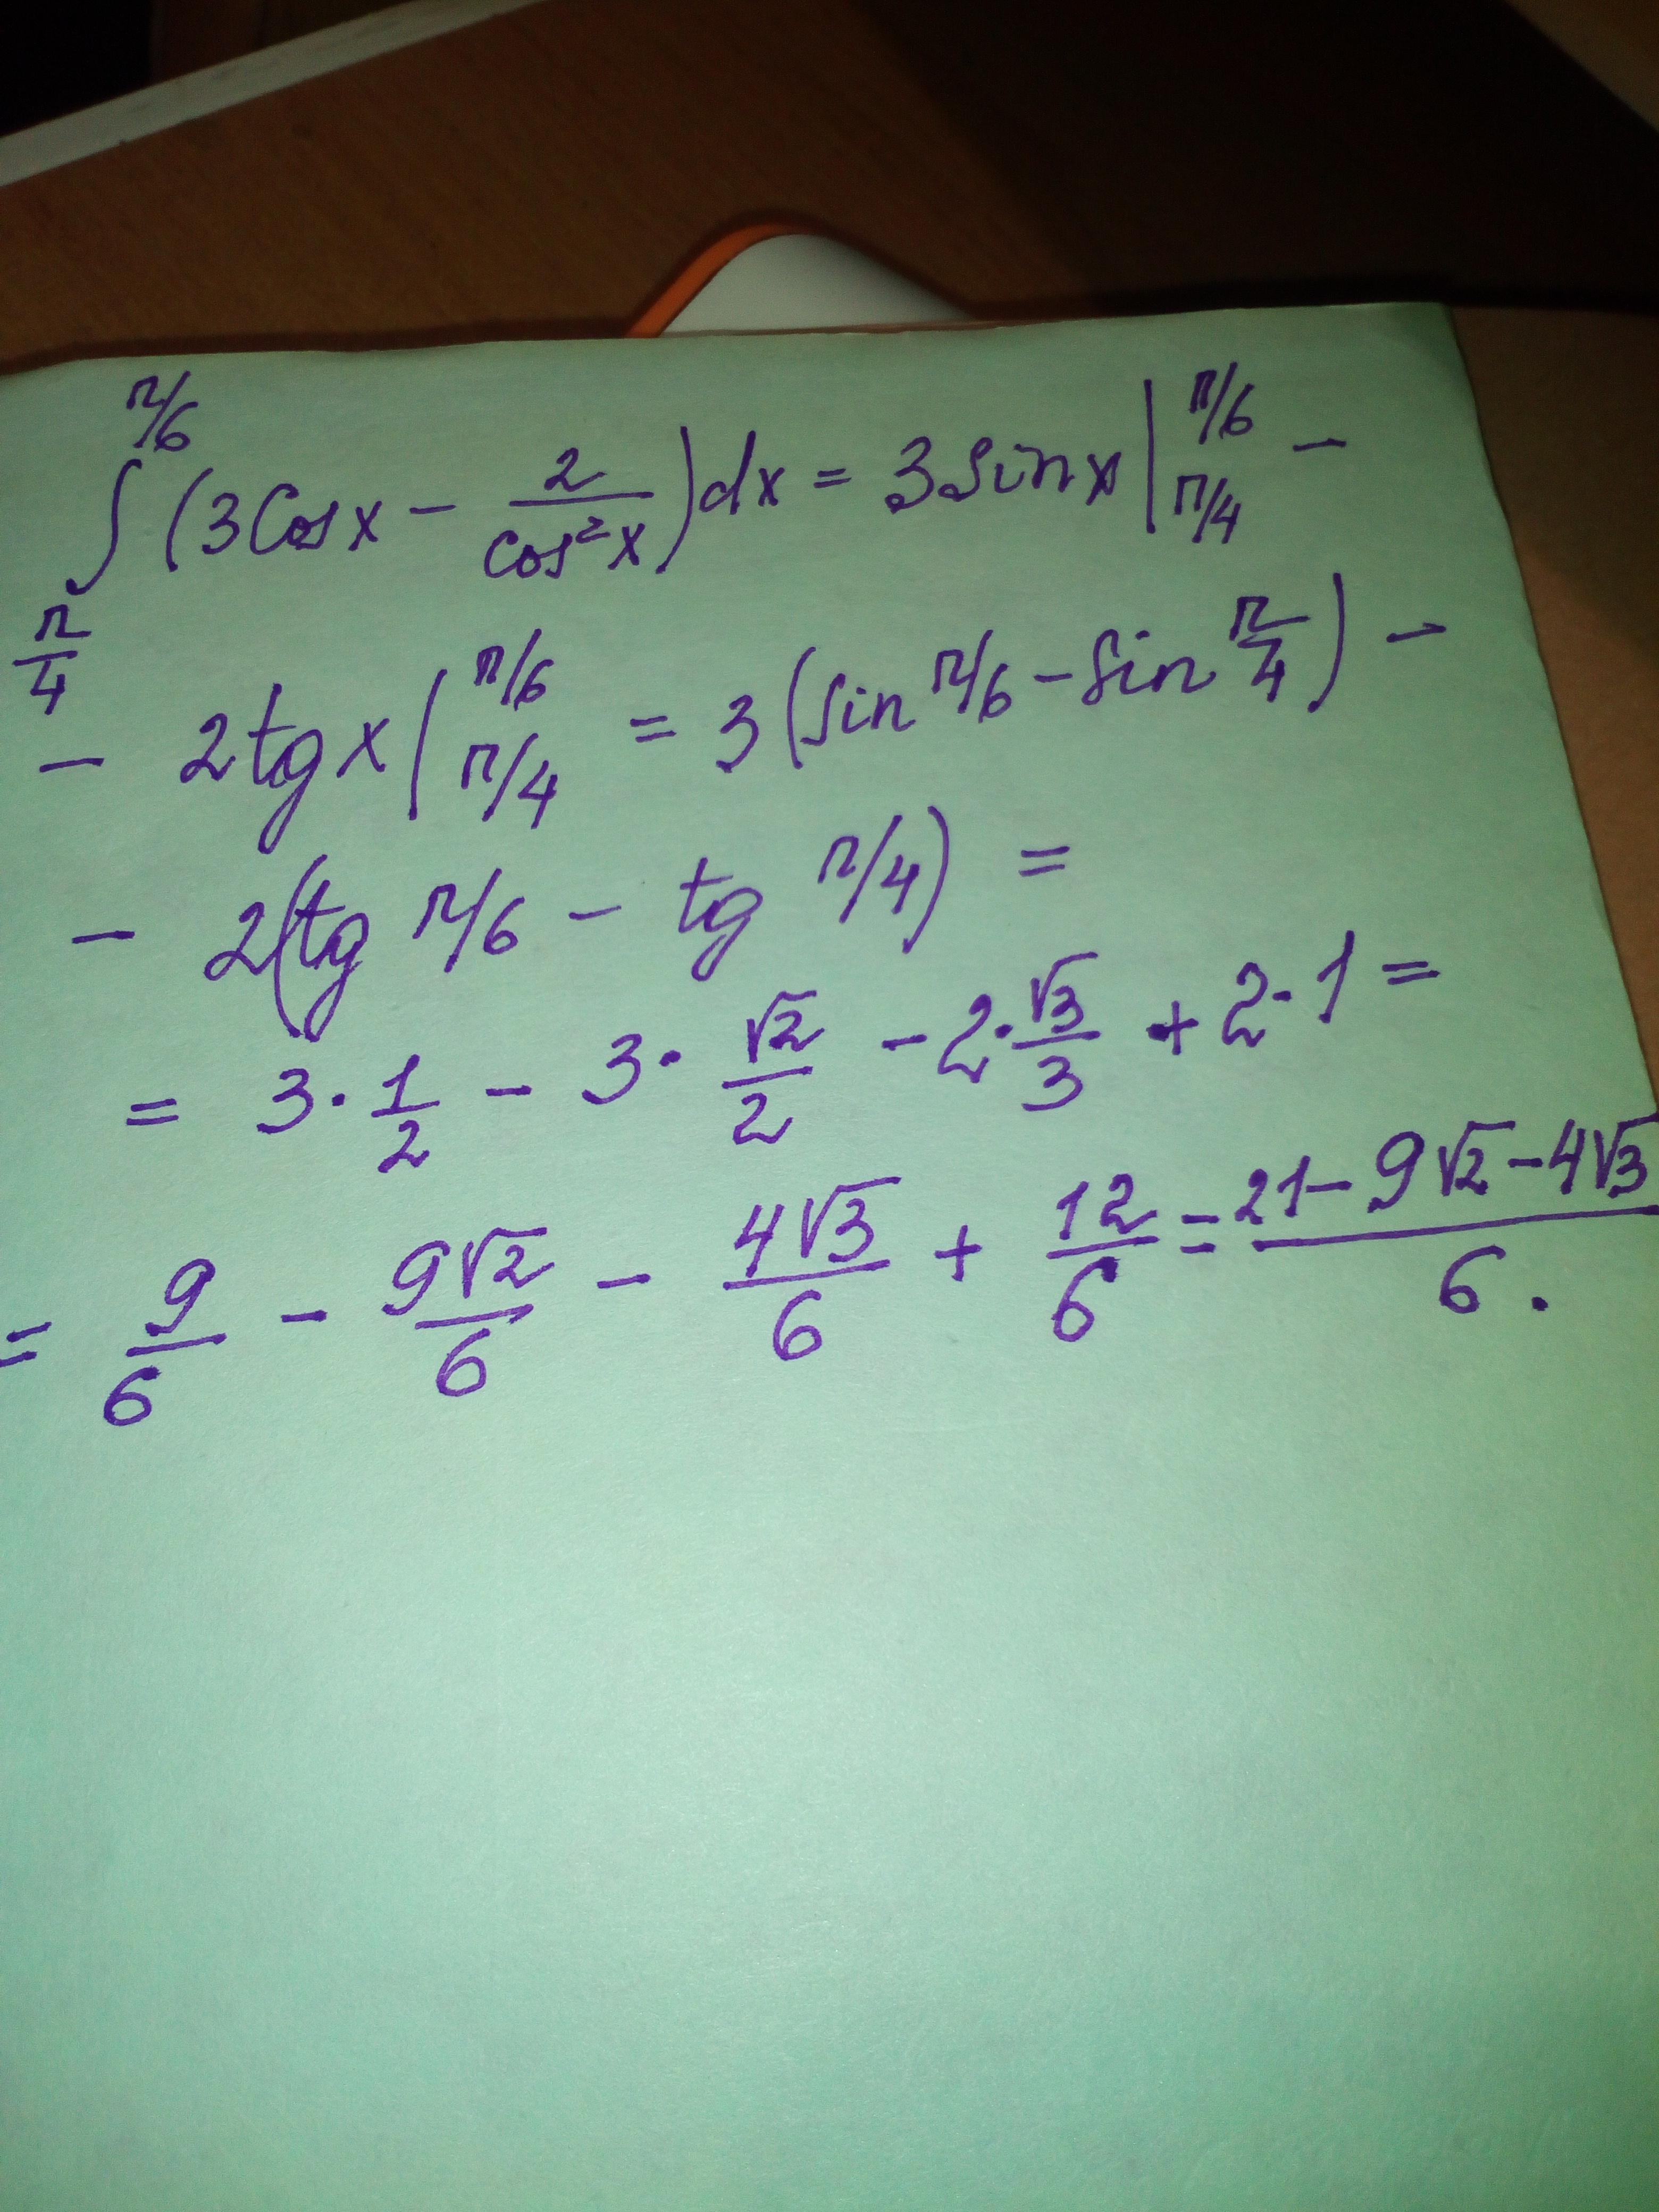 ∫_{π/4}^{π/6} (3cosx − 2/cos²x)dx = 3sinx |_{π/4}^{π/6} −
− 2tgx |_{π/4}^{π/6} = 3(sin π/6 − sin π/4) −
− 2(tg π/6 − tg π/4) =
= 3·1/2 − 3·√2/2 − 2·√3/3 + 2·1 =
= 9/6 − 9√2/6 − 4√3/6 + 12/6 = (21 − 9√2 − 4√3)/6.